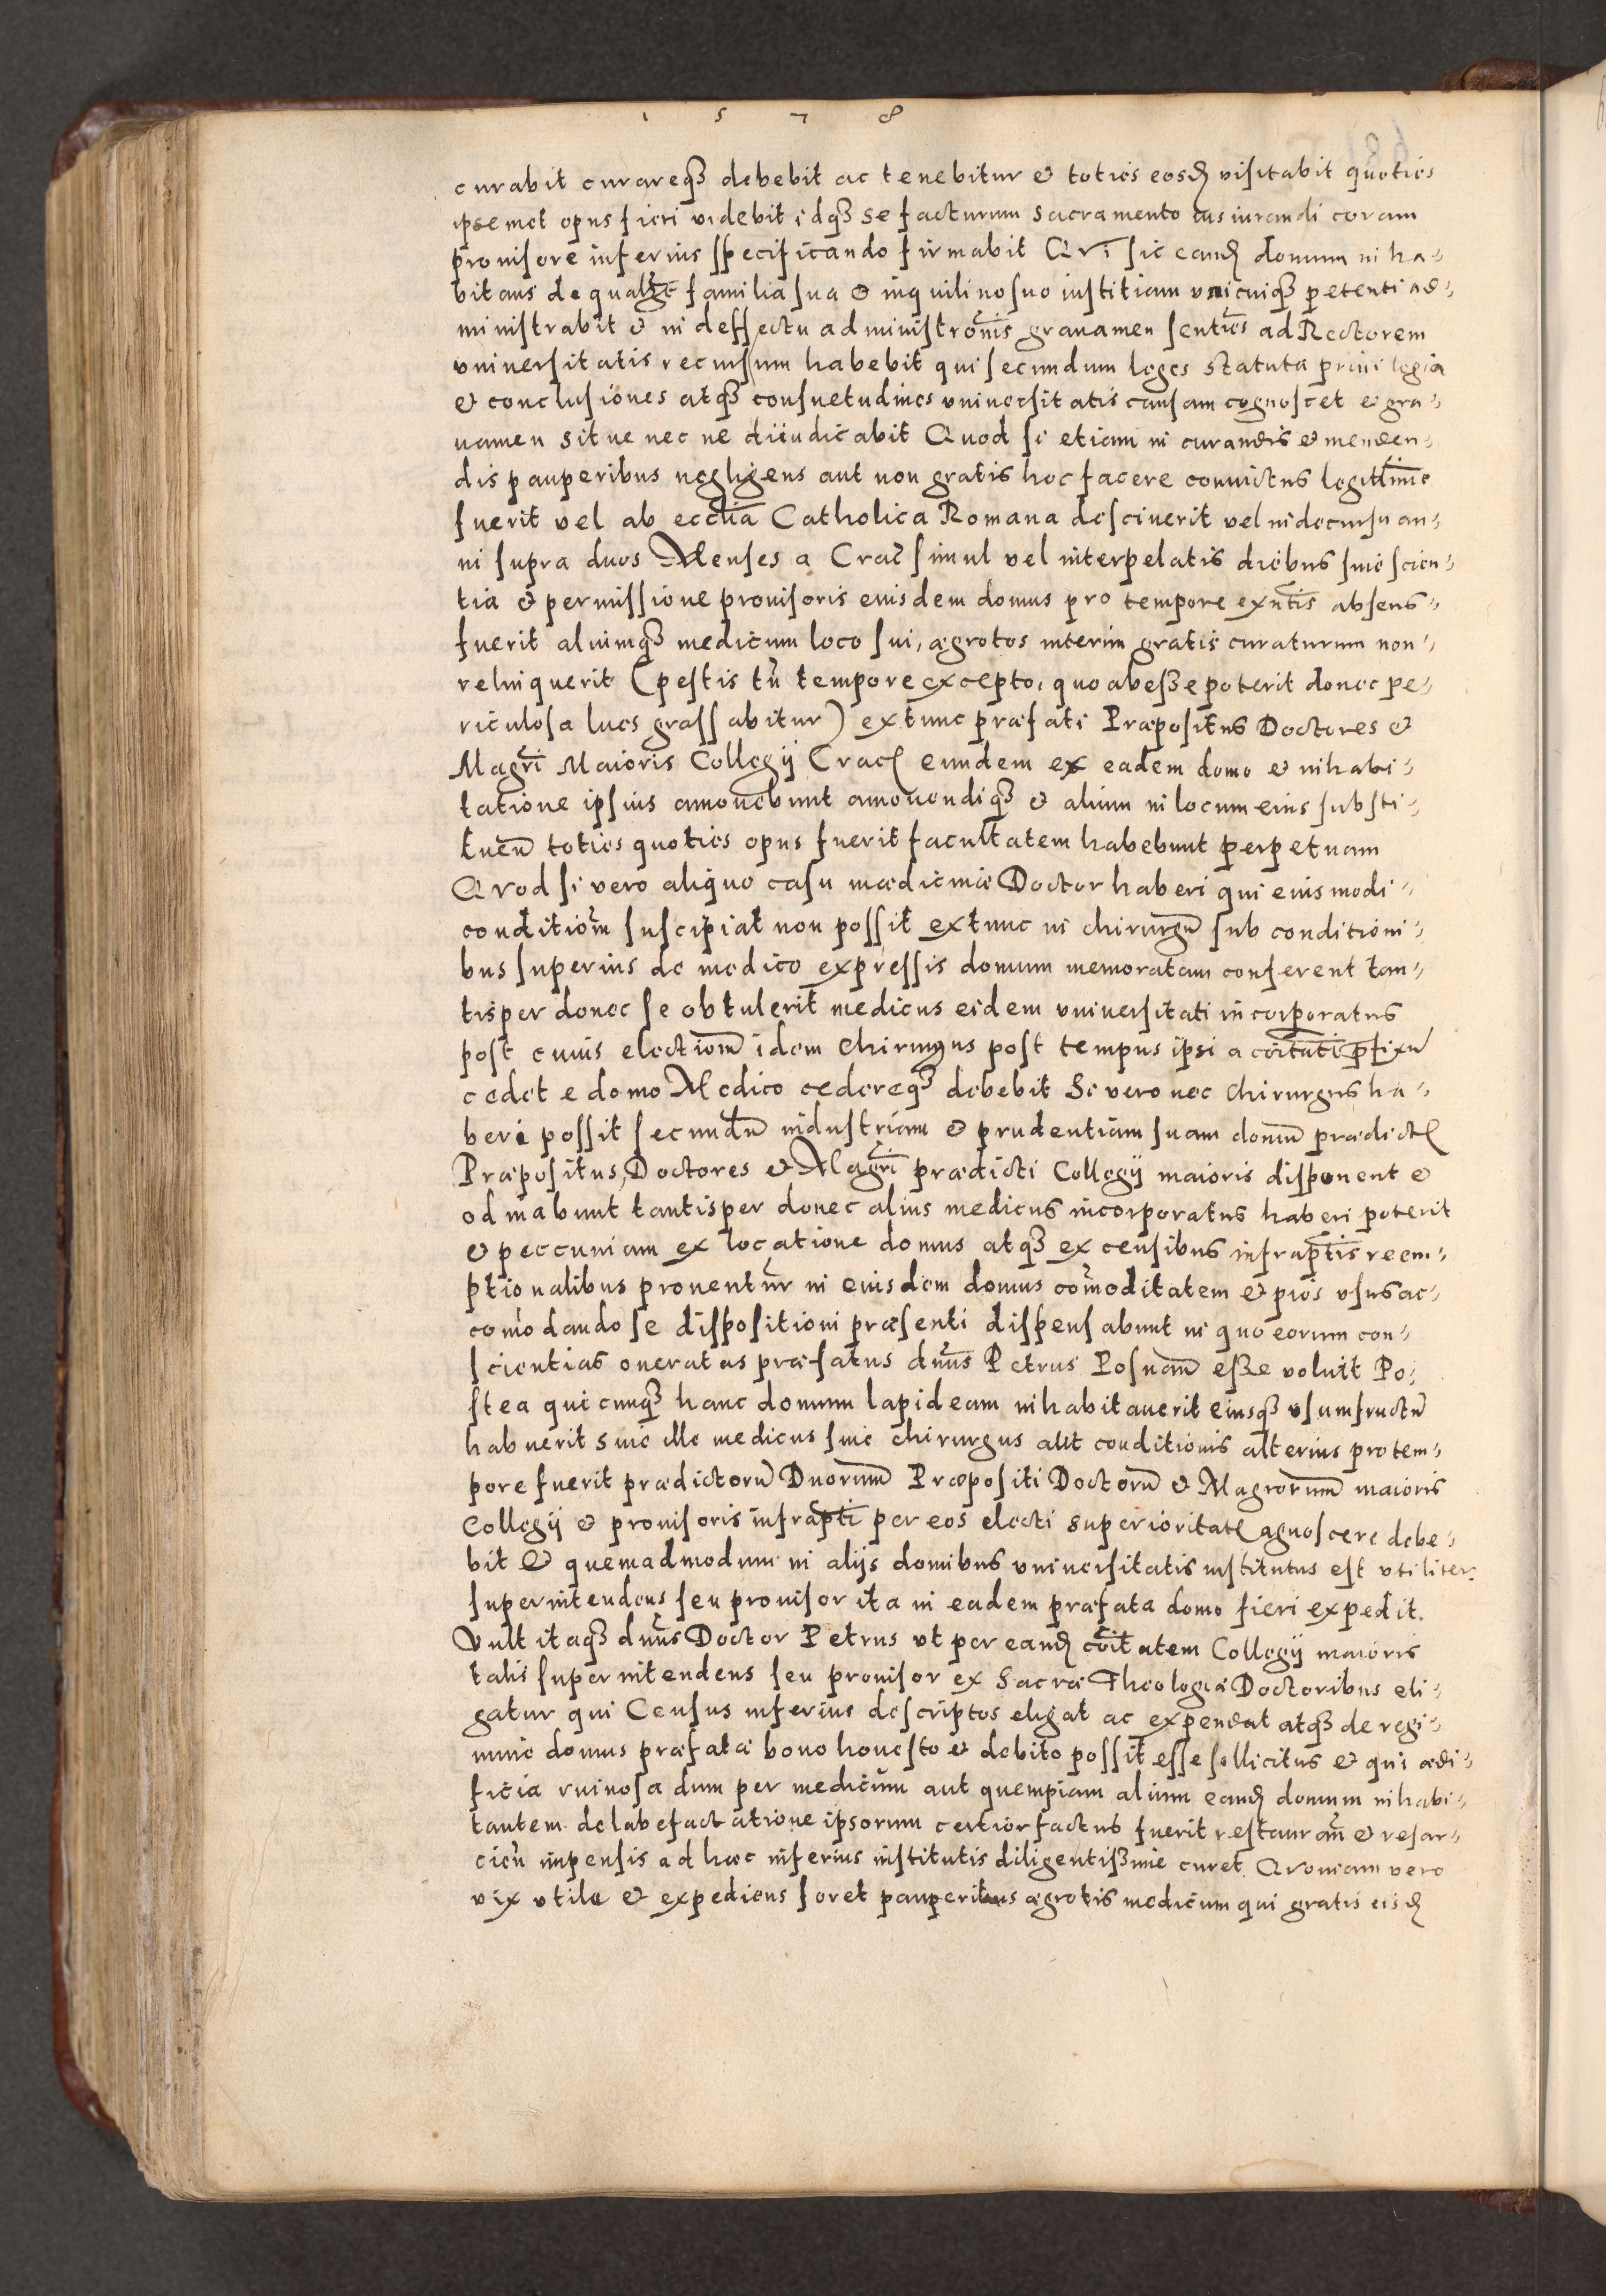 1 5 7 8
curabit curareqȝ debebit ac tenebitur & toties eosđ visitabit quoties
ipsemet opus fieri videbit idqȝ se facturum sacramento iusiurandi coram
provisore inferius specificando firmabit Qvi sic eanđ domum inha-
bitans de qualibet familia sua & inquilino suo iustitiam unicuiqȝ petenti ad-
ministrabit & in deffectu administrõnis gravamen sentiẽs ad Rectorem
universitatis recursum habebit qui secundum leges statuta privilegia
& conclusiones atqȝ consuetudines universitatis causam cognoscet & gra-
vamen sit ve nec ne diiudicabit Quod si etiam in curandis & meden-
dis pauperibus negligens aut non gratis hoc facere convictus legittime
fuerit vel ab ecclia Catholica Romana desciverit vel in decursu an-
ni supra duos Menses a Crac̃ simul vel interpelatis diebus sine scien-
tia & permissione provisoris eiusdem domus pro tempore exñtis absens
fuerit aliumqȝ medicum loco sui, ægrotos interim gratis curaturum non
relinquerit (pestis tñ tempore excepto, quo abesse poterit donec pe-
riculosa lues grassabitur) extunc præfati Præpositus Doctores &
Magrĩ Maioris Collegij Crac̃ eundem ex eadem domo & inhabi-
tatione ipsius amovebunt amovendiqȝ & alium in locum eius substi-
tueñ toties quoties opus fuerit facultatem habebunt perpetuam
Qvod si vero aliquo casu mædicinæ Doctor haberi qui eiusmodi
conditiom̃ suscipiat non possit extunc in chirurgũ sub conditioni-
bus superius de medico expressis domum memoratam conferent tan-
tisper donec se obtulerit medicus eidem universitati incorporatus
post cuius electiom̃ idem chirurgus post tempus ipsi a cõitati p̃fixũ
cedet e domo Medico cedereqȝ debebit Si vero nec chirurgus ha-
beri possit secundũ industriam & prudentiam suam domũ prædictã
Præpositus, Doctores & Magrĩ prædicti Collegij maioris disponent &
ordinabunt tantisper donec alius medicus incorporatus haberi poterit
& peccuniam ex locatione domus atqȝ ex censibus infrap̃tis reem-
ptionalibus proventur̃ in eiusdem domus com̃oditatem & pios usus ac-
com̃odando se dispositioni præsenti dispensabunt in quo eorum con-
scientias oneratas præfatus dñus Petrus Posnañ esse voluit Po-
stea quicunqȝ hanc domum lapideam inhabitaverit eiusqȝ usumfructũ
habuerit sive ille medicus sive chirurgus aut conditionis alterius pro tem-
pore fuerit prædictorũ Dnorum Præpositi Doctorũ & Magrorum maioris
Collegij & provisoris infrap̃ti per eos electi superioritatẽ agnoscere debe-
bit & quemadmodum in alijs domibus universitatis institutus est utiliter
superintendens seu provisor ita in eadem præfata domo fieri expedit.
Vult itaqȝ dñus Doctor Petrus ut per eanđ cõitatem Collegij maioris
talis superintendens seu provisor ex Sacræ Theologiæ Doctoribus eli-
gatur qui Census inferius descriptos eligat ac expendat atqȝ de regi-
mine domus præfatæ bono honesto & debito possit esse sollicitus & qui ædi-
ficia ruinosa dum per medicum aut quempiam alium eanđ domum inhabi-
tantem de labefactatione ipsorum certior factus fuerit restaurañ & resar-
cieñ impensis ad hæc inferius institutis diligentissime curet Qvoniam vero
vix utile & expediens foret pauperibus ægrotis medicum qui gratis eisđ